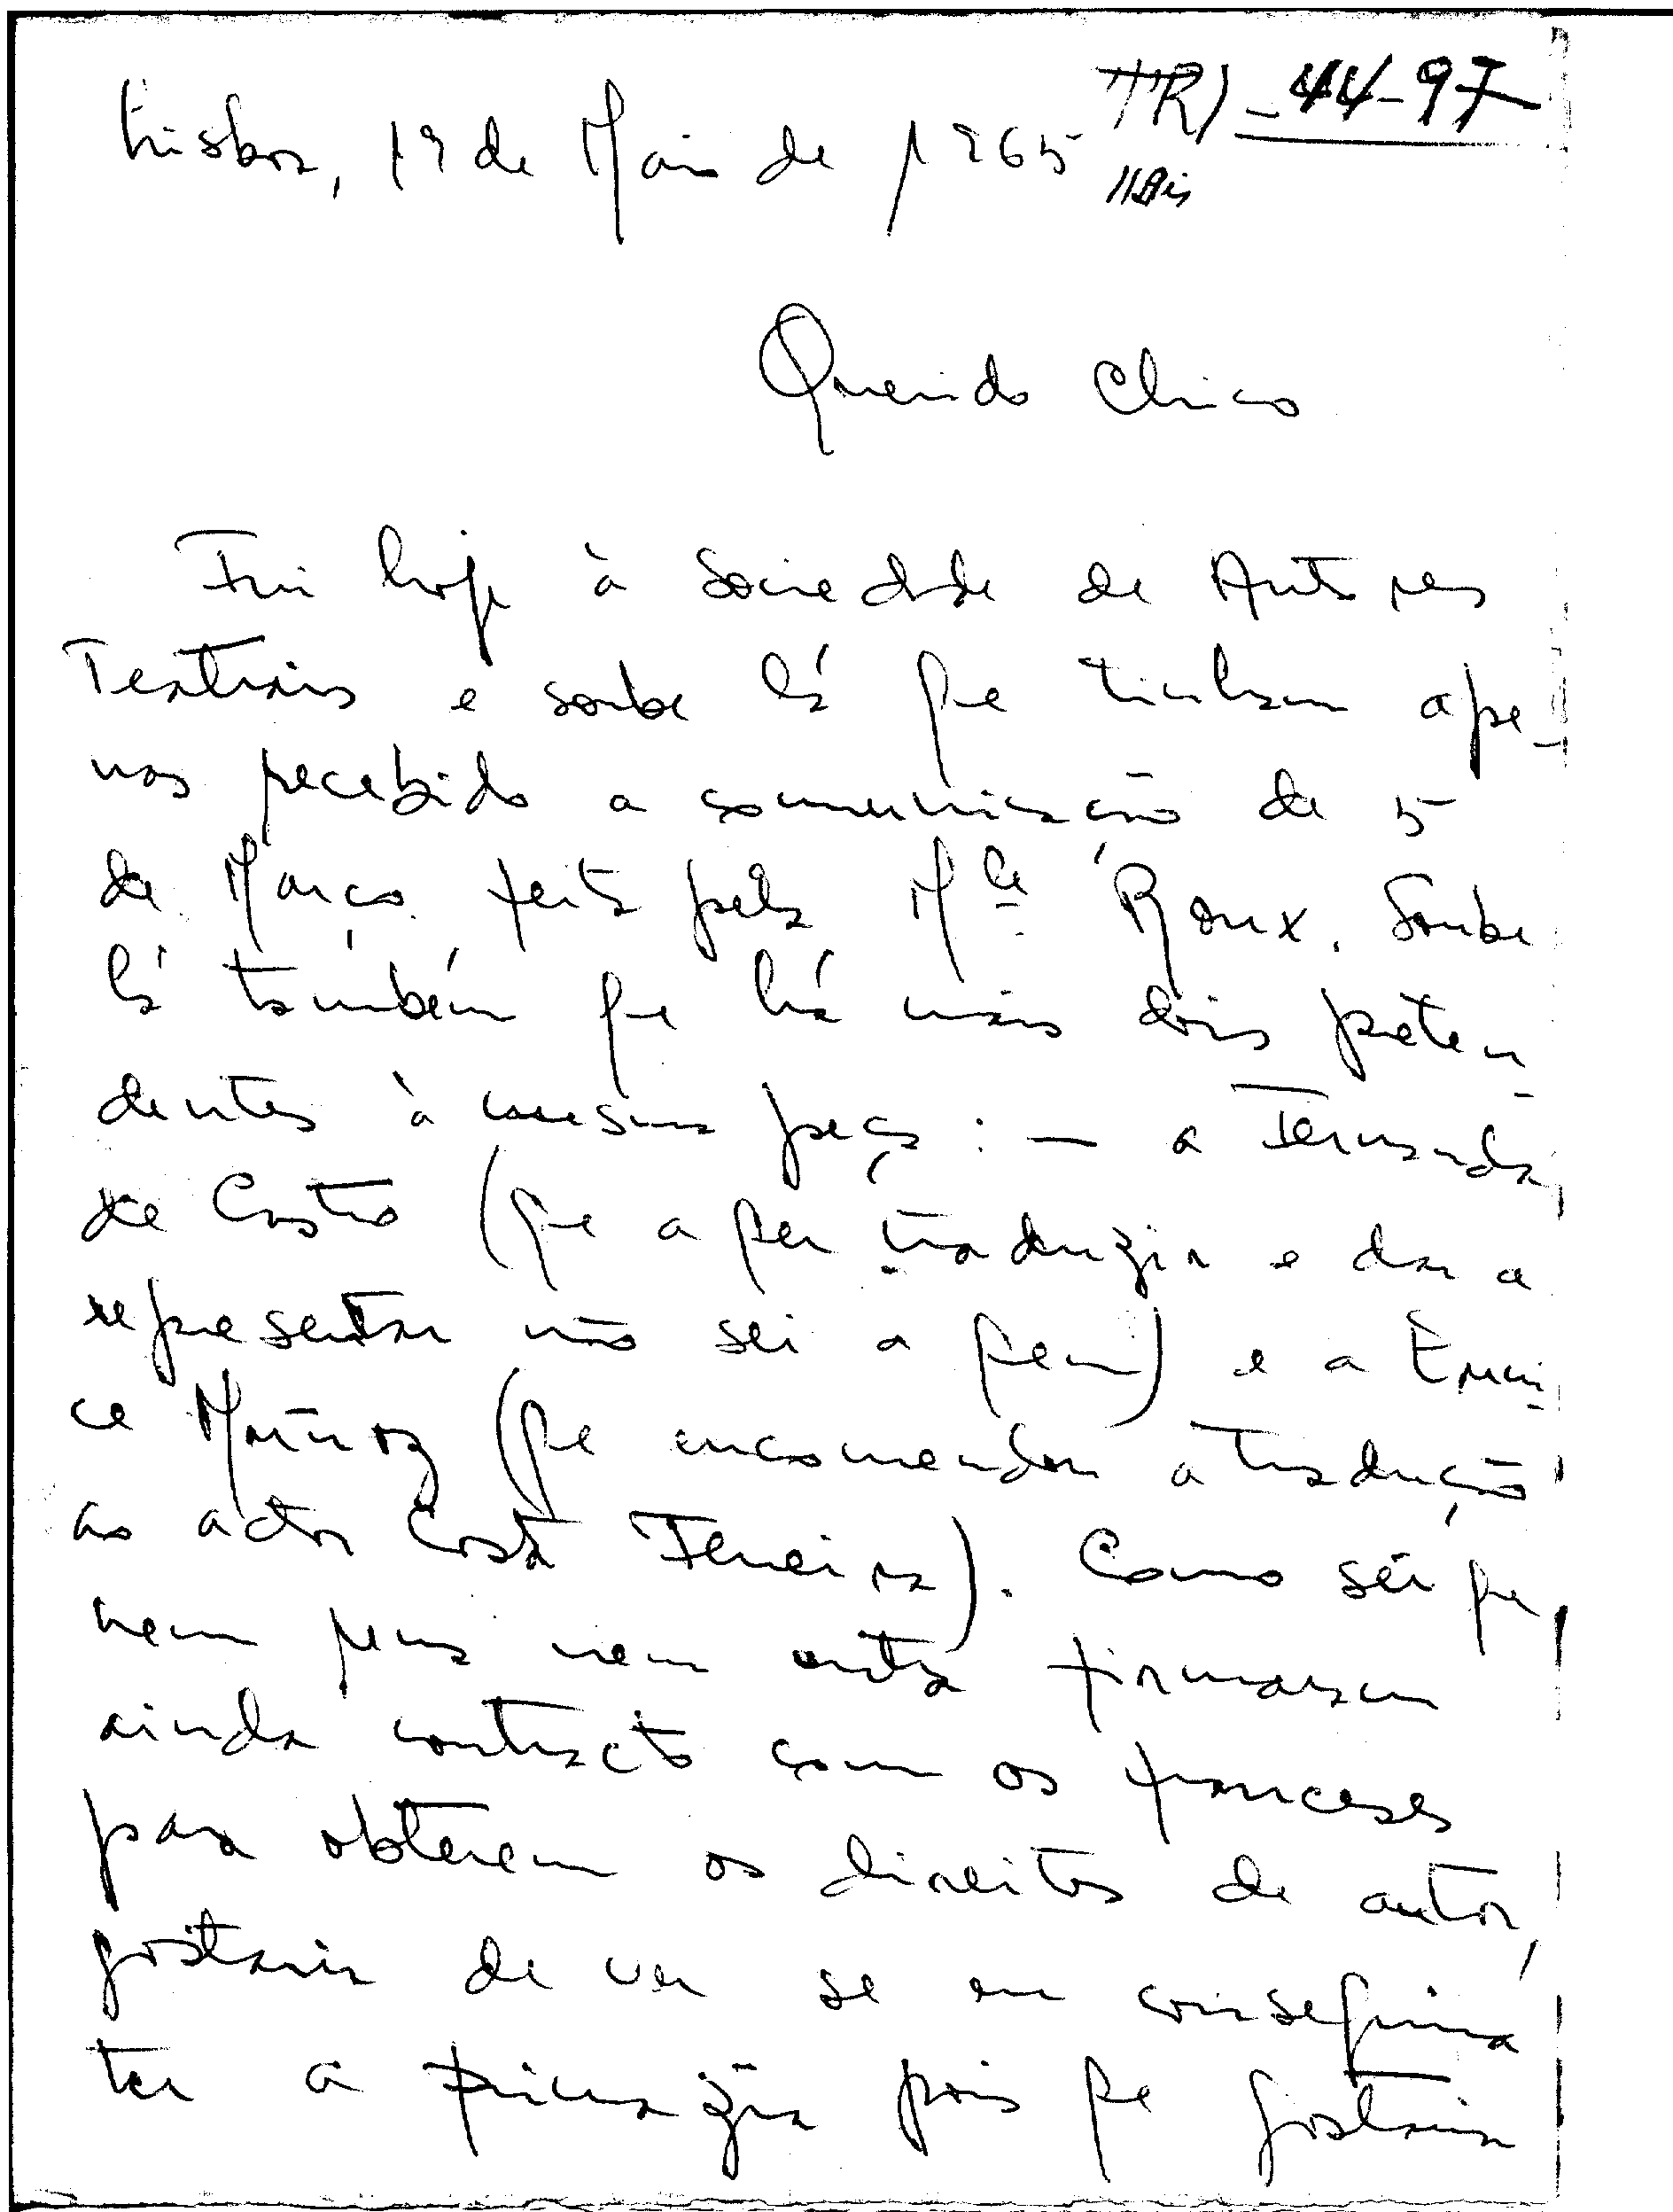 TRI-44-97
Lisboa, 19 de Maio de 1965
11Bis
Querido Chico
Fui hoje à Sociedade de Autores
Teatrais e soube lá que tinham ape-
nas recebido a comunicação de 5
de Março feita pela Mlle Roux. Soube
lá também que há mais dois preten-
dentes à mesma peça: — a Fernanda
de Castro (que a quer traduzir e dar a
representar não sei a quem) e a Euni-
ce Muñoz (que encomendou a tradução
ao actor Costa Ferreira). Como sei que
nem uma nem outra firmaram
ainda contracto com os franceses
para obterem os direitos de autor,
gostaria de ver se eu conseguiria
ter a primazia pois que gostaria